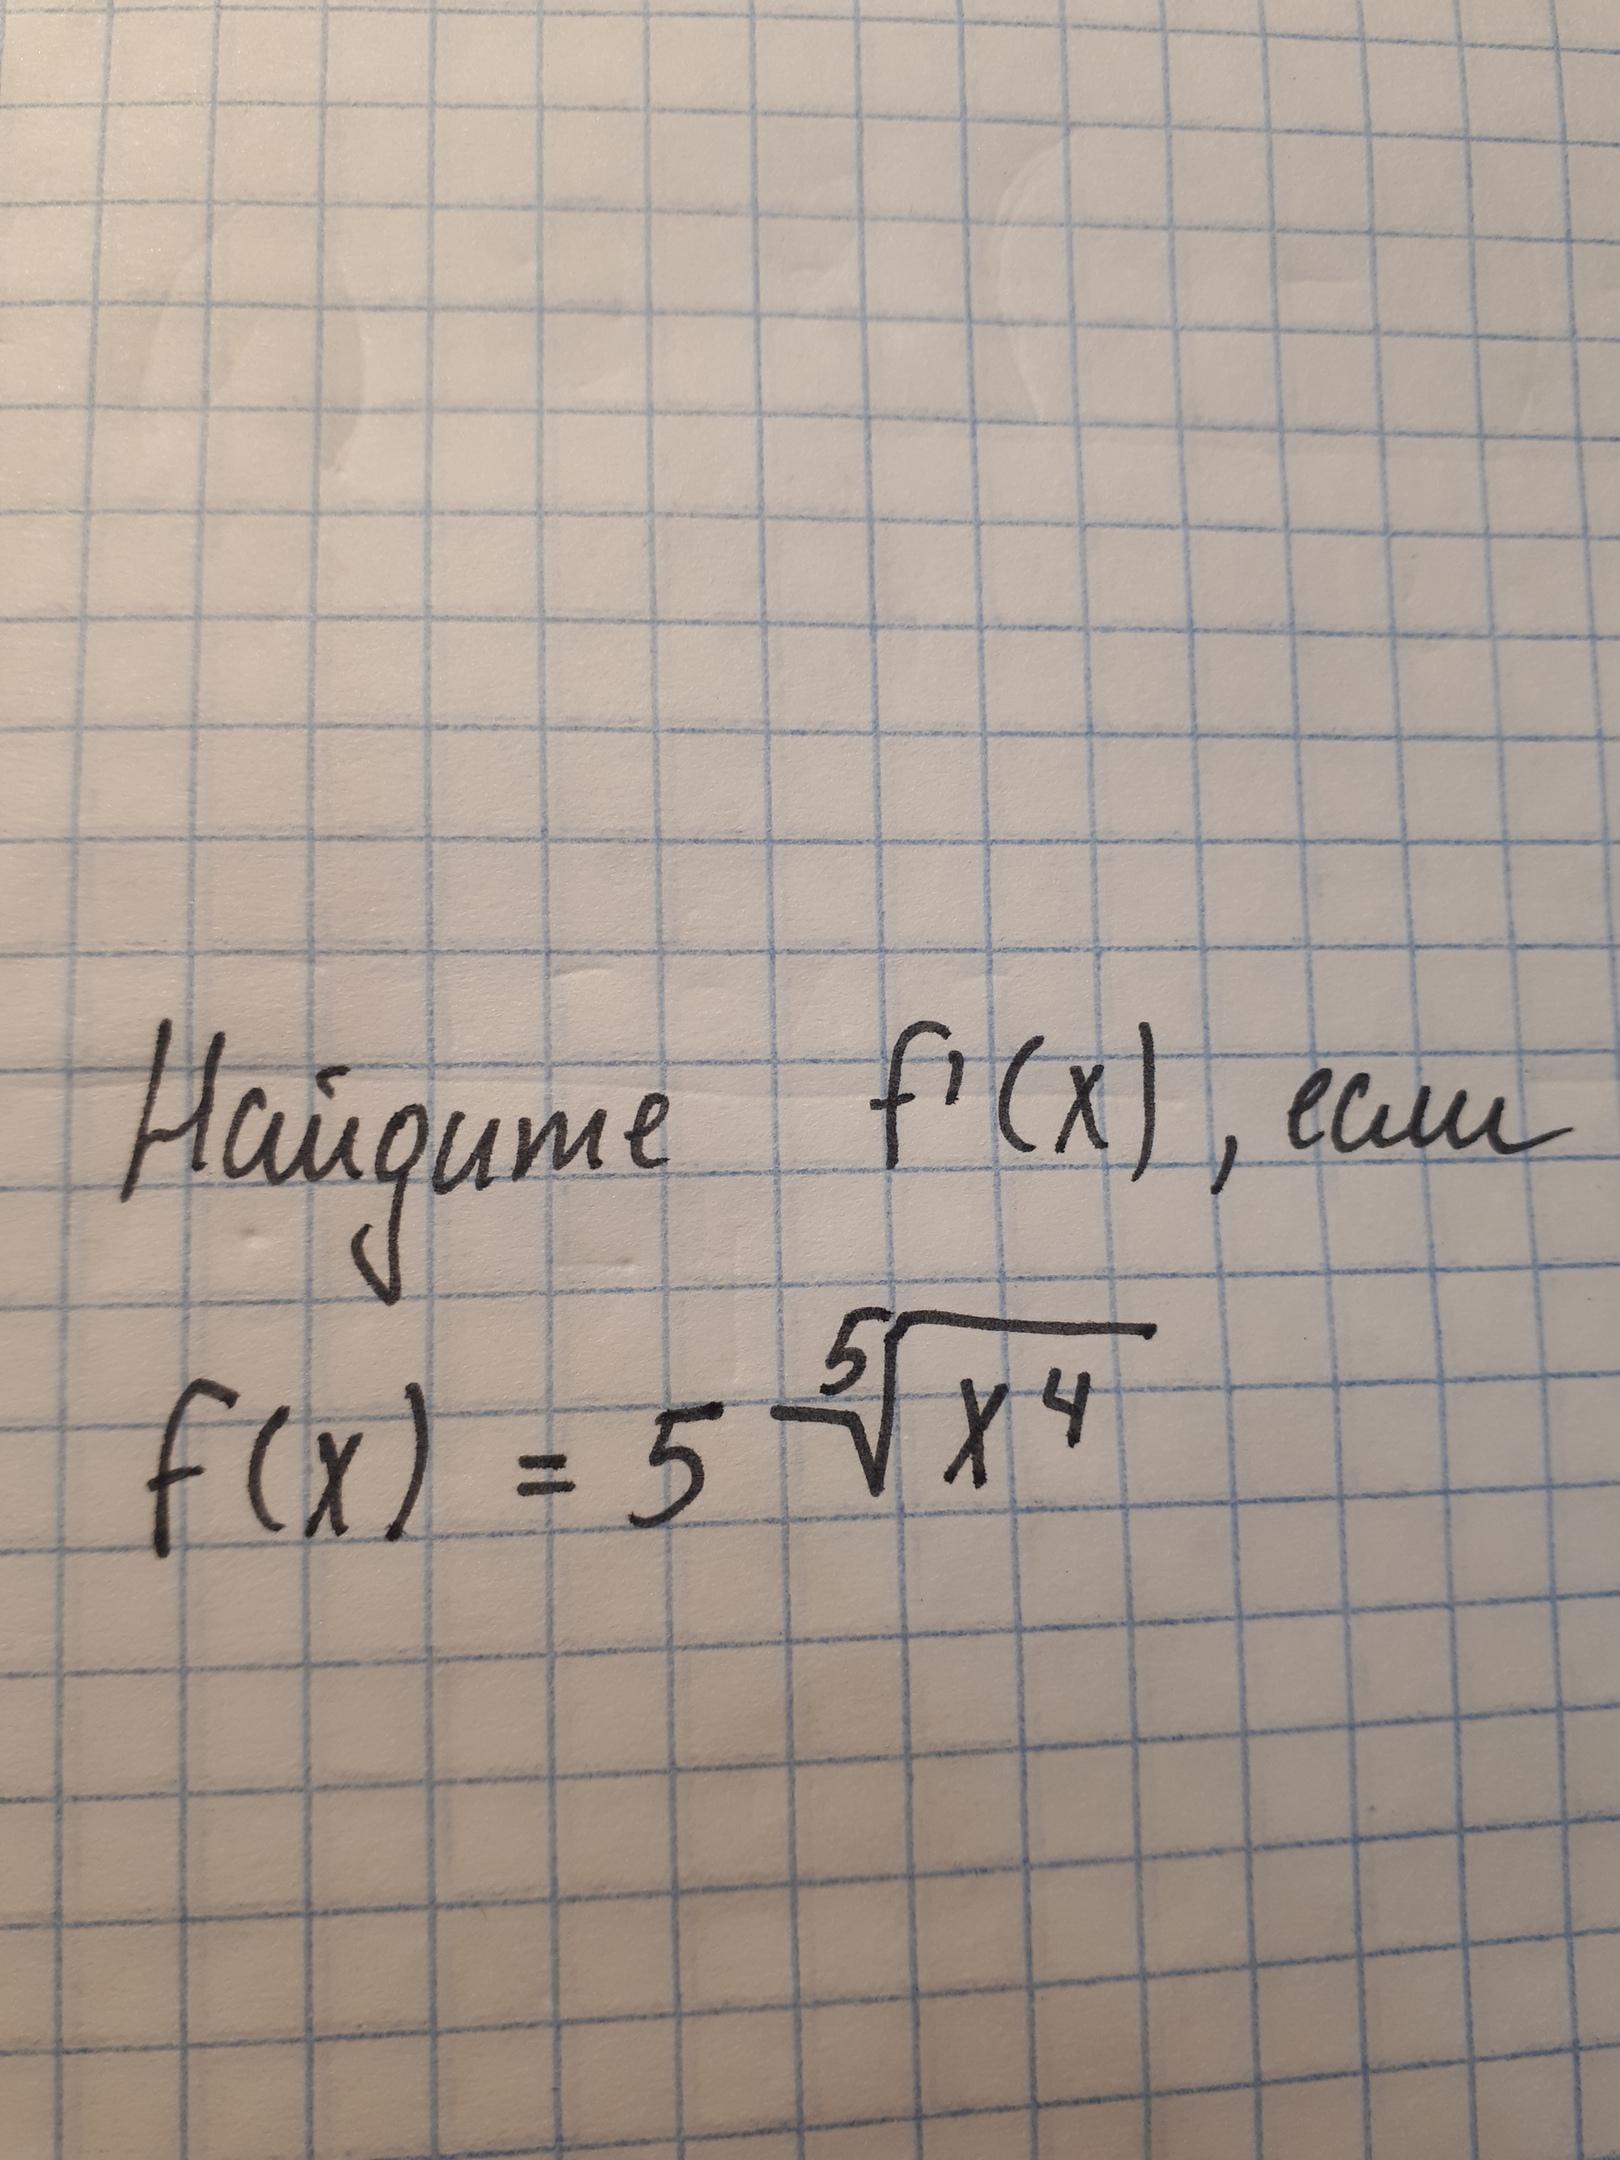 Найдите f'(x), если
f(x) = 5 ⁵√x⁴